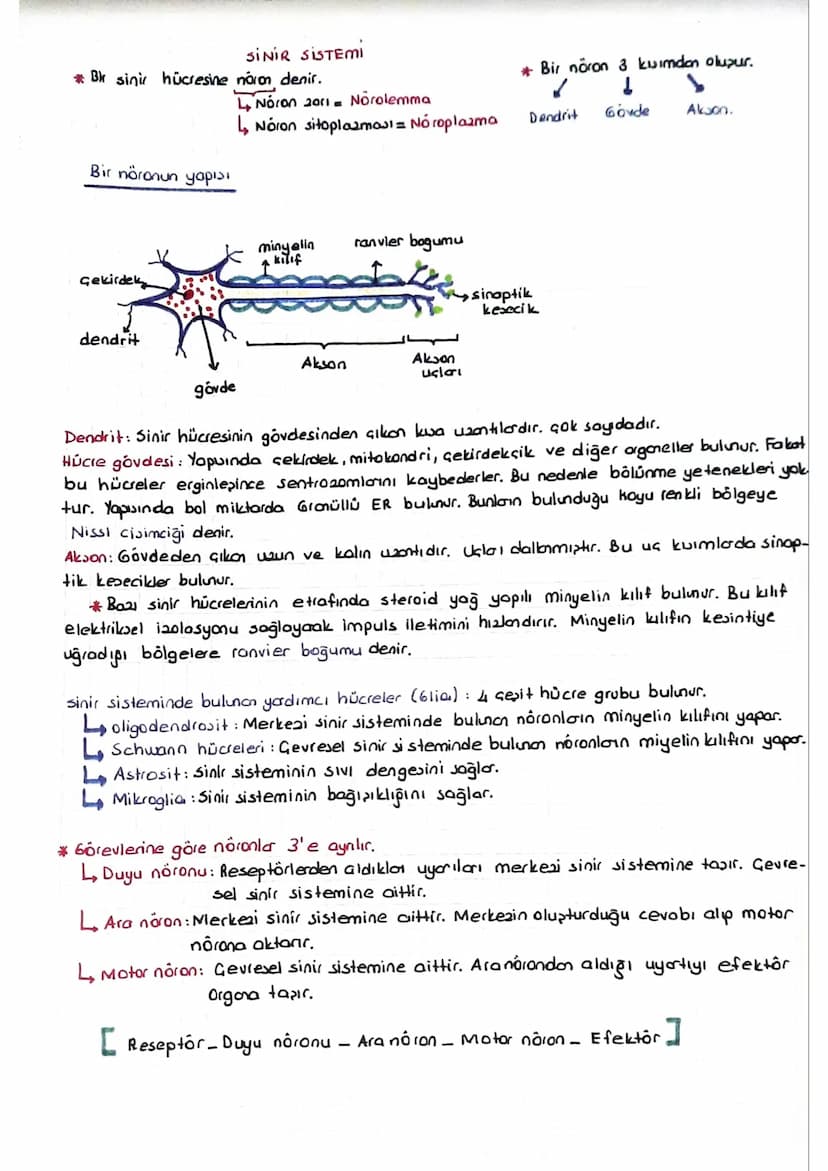 SİNİR SİSTEMİ
* Bir sinir hücresine nöron denir.
↳ Nöron zarı = Nörolemma
↳ Nöron sitoplazması = Nöroplazma
* Bir nöron 3 kısımdan oluşur.
Dendrit Gövde Akson.
Bir nöronun yapısı
minyelin kılıf
ranvier bogumu
Çekirdek
sinaptik kesecik
dendrit
Akson
Akson uçları
gövde
Dendrit: Sinir hücresinin gövdesinden çıkan kısa uzantılardır. çok sayıdadır.
Hücre gövdesi: Yapısında çekirdek, mitokondri, çekirdekçik ve diğer organeller bulunur. Fakat
bu hücreler erginleşince sentrozomlarını kaybederler. Bu nedenle bölünme yetenekleri yok
tur. Yapısında bol miktarda Granüllü ER bulunur. Bunların bulunduğu koyu renkli bölgeye
Nissl cisimciği denir.
Akson: Gövdeden çıkan uzun ve kalın uzantıdır. Uçları dallanmıştır. Bu uç kısımlarda sinap-
tik kesecikler bulunur.
* Bazı sinir hücrelerinin etrafında steroid yağ yapılı minyelin kılıf bulunur. Bu kılıf
elektriksel izolasyonu sağlayarak impuls iletimini hızlandırır. Minyelin kılıfın kesintiye
uğradığı bölgelere ranvier boğumu denir.
sinir sisteminde bulunan yardımcı hücreler (Glia) : 4 çeşit hücre grubu bulunur.
↳ oligodendrosit : Merkezi sinir sisteminde bulunan nöronların minyelin kılıfını yapar.
↳ Schwann hücreleri : Çevresel sinir sisteminde bulunan nöronların miyelin kılıfını yapar.
↳ Astrosit : sinir sisteminin sıvı dengesini sağlar.
↳ Mikroglia : Sinir sisteminin bağışıklığını sağlar.
* Görevlerine göre nöronlar 3'e ayrılır.
↳ Duyu nöronu: Reseptörlerden aldıkları uyarıları merkezi sinir sistemine taşır. Çevre-
sel sinir sistemine aittir.
↳ Ara nöron: Merkezi sinir sistemine aittir. Merkezin oluşturduğu cevabı alıp motor
nörona aktarır.
↳ Motor nöron: Çevresel sinir sistemine aittir. Ara nörondan aldığı uyartıyı efektör
Organa taşır.
[ Reseptör - Duyu nöronu - Ara nöron - Motor nöron - Efektör ]